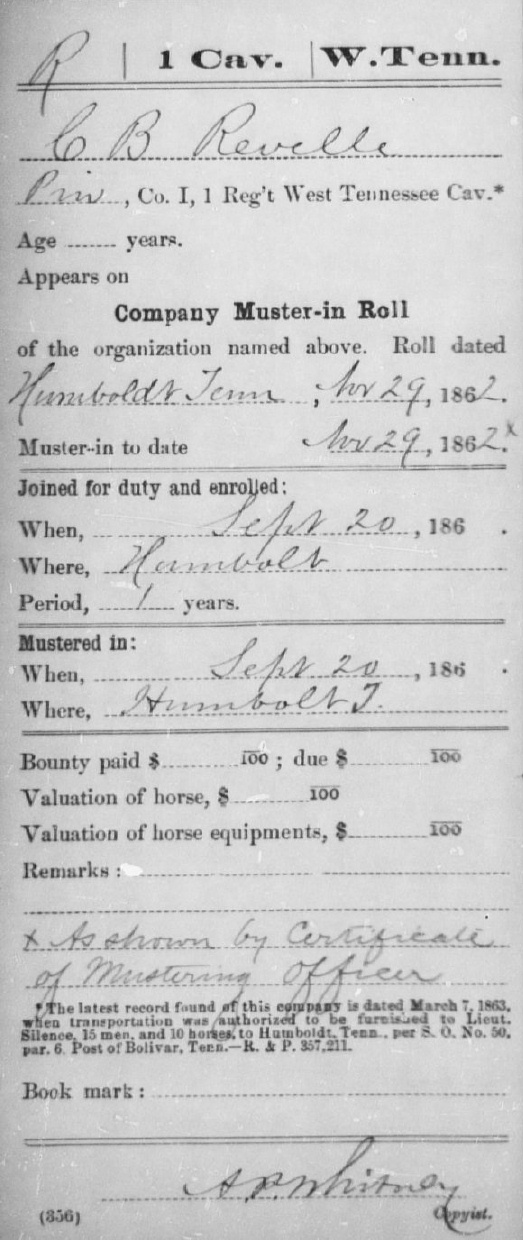 R | 1 Cav. | W. Tenn.
C B Revelle
Priv, Co. I, 1 Reg't West Tennessee Cav.*
Age ........ years.
Appears on
Company Muster-in Roll
of the organization named above. Roll dated
Humboldt Tenn, Nov 29, 1862.
Muster-in to date Nov 29, 1862.x
Joined for duty and enrolled:
When, Sept 20, 186 .
Where, Humbolt
Period, 1 years.
Mustered in:
When, Sept 20, 186 .
Where, Humbolt T.
Bounty paid $ ........ 100 ; due $ ........ 100
Valuation of horse, $ ........ 100
Valuation of horse equipments, $ ........ 100
Remarks:
x As shown by Certificate
of Mustering Officer
*The latest record found of this company is dated March 7, 1863,
when transportation was authorized to be furnished to Lieut.
Silence, 15 men, and 10 horses, to Humboldt, Tenn., per S. O. No. 50,
par. 6, Post of Bolivar, Tenn.—R. & P. 357,211.
Book mark:
A.P. Whitney
(356) Copyist.